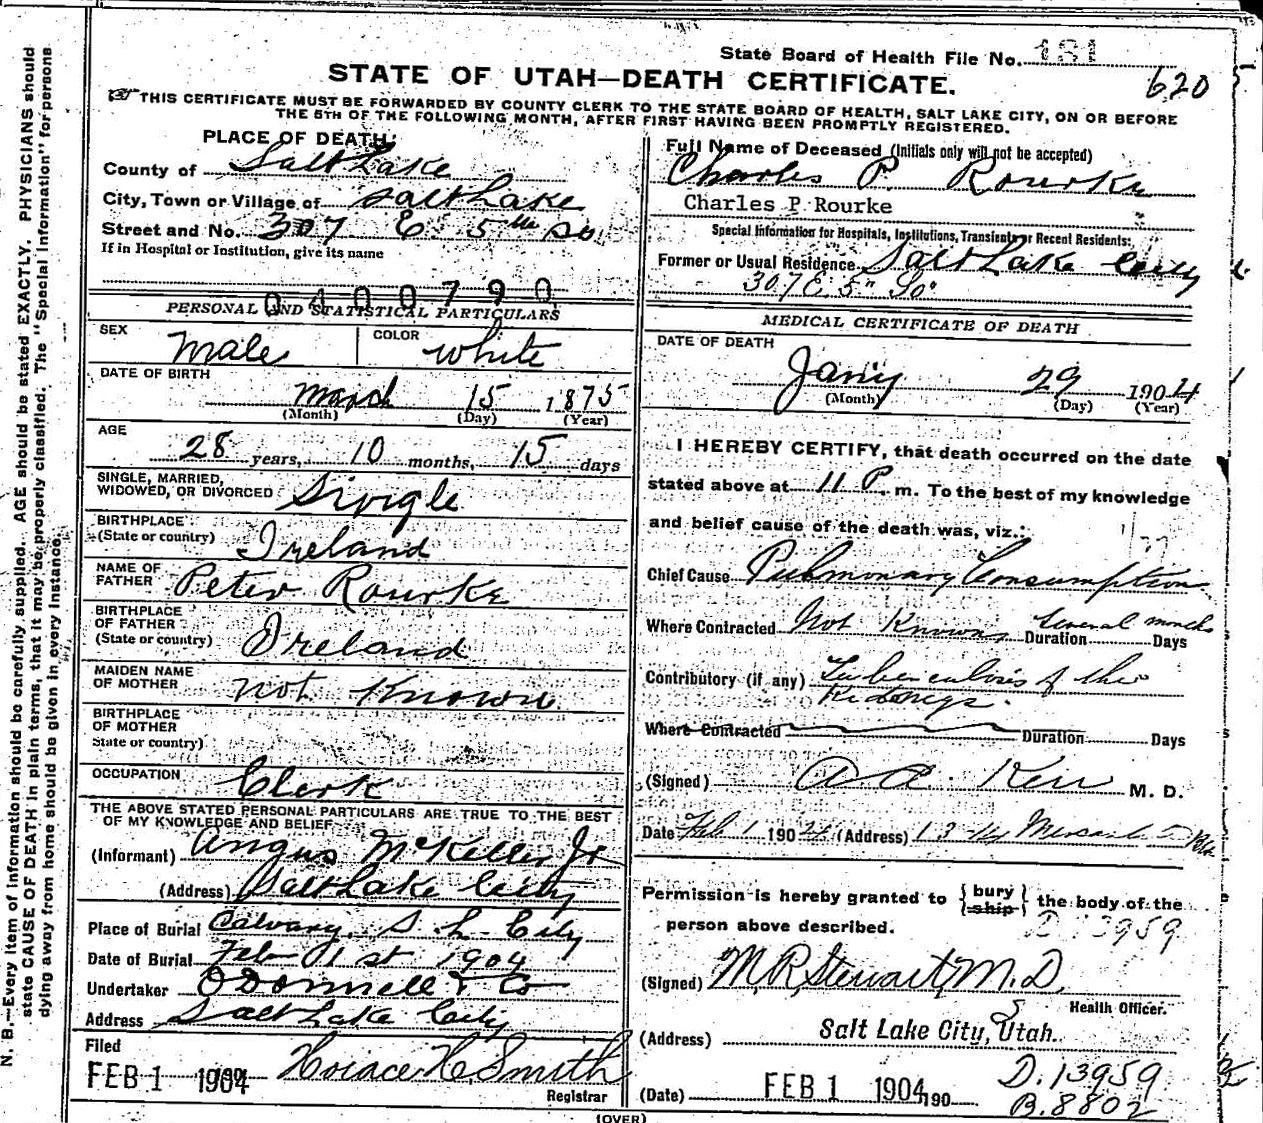 State Board of Health File No. 181
620
STATE OF UTAH—DEATH CERTIFICATE.
THIS CERTIFICATE MUST BE FORWARDED BY COUNTY CLERK TO THE STATE BOARD OF HEALTH, SALT LAKE CITY, ON OR BEFORE
THE 5TH OF THE FOLLOWING MONTH, AFTER FIRST HAVING BEEN PROMPTLY REGISTERED.
PLACE OF DEATH:
County of Salt Lake
City, Town or Village of Salt Lake
Street and No. 307 E. 5th So
If in Hospital or Institution, give its name
0400790
PERSONAL AND STATISTICAL PARTICULARS
SEX Male COLOR White
DATE OF BIRTH
March 15 1875
(Month) (Day) (Year)
AGE
28 years, 10 months, 15 days
SINGLE, MARRIED,
WIDOWED, OR DIVORCED Single
BIRTHPLACE
(State or country) Ireland
NAME OF
FATHER Peter Rourke
BIRTHPLACE
OF FATHER
(State or country) Ireland
MAIDEN NAME
OF MOTHER not Known
BIRTHPLACE
OF MOTHER
State or country)
OCCUPATION Clerk
THE ABOVE STATED PERSONAL PARTICULARS ARE TRUE TO THE BEST
OF MY KNOWLEDGE AND BELIEF
(Informant) Angus McKeller Jr
(Address) Salt Lake City
Place of Burial Calvary, S. L. City
Date of Burial Feb 1st 1904
Undertaker O'Donnell & Co
Address Salt Lake City
Filed
FEB 1 1904 Horace H. Smith
Registrar
Full Name of Deceased (Initials only will not be accepted)
Charles P. Rourke
Charles P. Rourke
Special Information for Hospitals, Institutions, Transients or Recent Residents:
Former or Usual Residence Salt Lake City
307 E. 5" So
MEDICAL CERTIFICATE OF DEATH
DATE OF DEATH
Jany 29 1904
(Month) (Day) (Year)
I HEREBY CERTIFY, that death occurred on the date
stated above at 11 P. m. To the best of my knowledge
and belief cause of the death was, viz.:
Chief Cause Pulmonary Consumption
Where Contracted Not Known Duration Several months Days
Contributory (if any) Tuberculosis of the
Kidneys.
Where Contracted Duration Days
(Signed) A A Kerr M. D.
Date Feb 1 1904 (Address)
Permission is hereby granted to { bury / ship } the body of the
person above described.
D 13959
(Signed) M. R. Stewart, M. D.
Health Officer.
(Address) Salt Lake City, Utah.
(Date) FEB 1 1904 190
D. 13959
B. 8802
(OVER)
N. B.—Every item of information should be carefully supplied. AGE should be stated EXACTLY. PHYSICIANS should
state CAUSE OF DEATH in plain terms, that it may be properly classified. The "Special Information" for persons
dying away from home should be given in every instance.